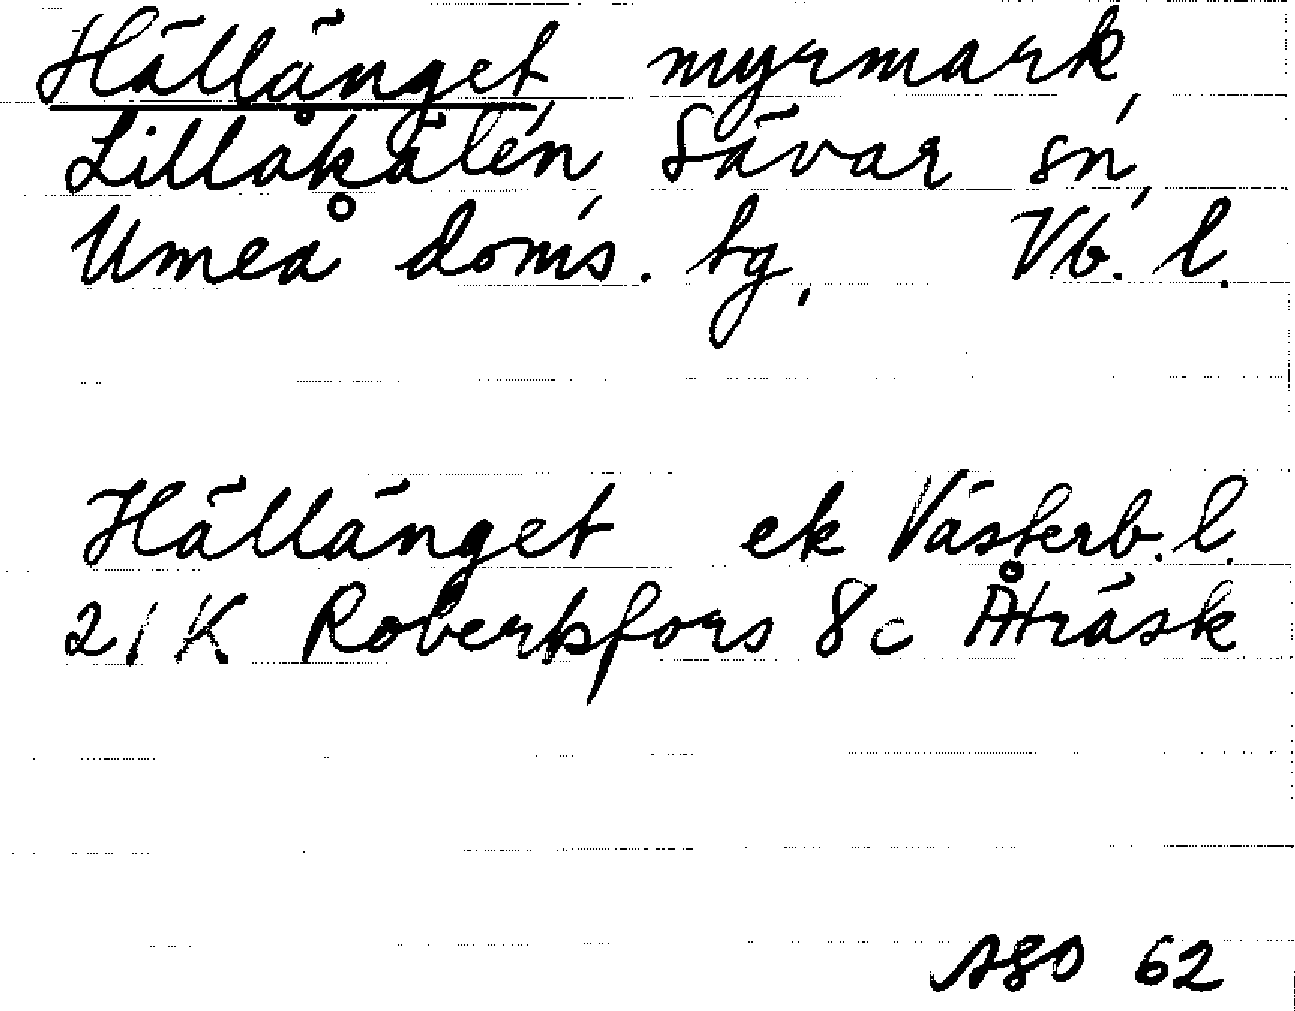 Hällänget myrmark,
Lillåkälen, Sävar sn,
Umeå doms. tg, Vb. l.
Hällänget ek Västerb. l.
21 K Robertsfors 8c Åträsk
ASO 62